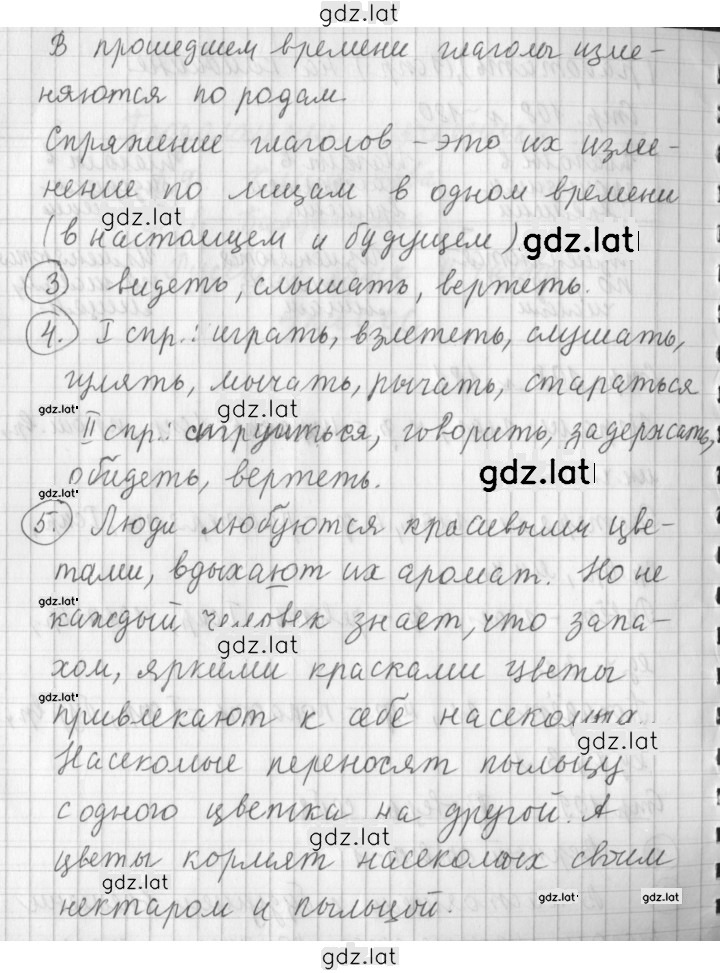 gdz.lat
В прошедшем времени глаголы изме-
няются по родам.
Спряжение глаголов - это их изме-
нение по лицам в одном времени
gdz.lat
(в настоящем и будущем).
gdz.lat
3 видеть, слышать, вертеть.
4. I спр.: играть, взлететь, слушать,
гулять, мычать, рычать, стараться
gdz.lat
gdz.lat
II спр.: струиться, говорить, задержать,
обидеть, вертеть.
gdz.lat
gdz.lat
5 Люди любуются красивыми цве-
тами, вдыхают их аромат. Но не
gdz.lat
каждый человек знает, что запа-
gdz.lat
хом, яркими красками цветы
gdz.lat
привлекают к себе насекомых.
gdz.lat
Насекомые переносят пыльцу
с одного цветка на другой. А
gdz.lat
цветы кормят насекомых своим
gdz.lat
нектаром и пыльцой.
gdz.lat
gdz.lat
gdz.lat